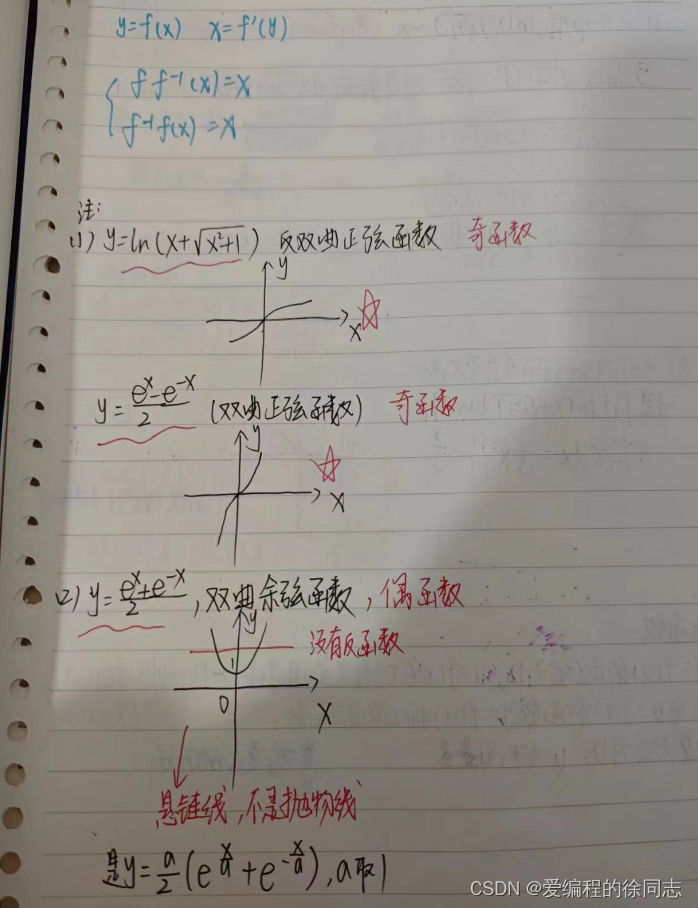 y=f(x) x=f'(y)
f f⁻¹(x)=x
f⁻¹f(x)=x
注:
(1) y=ln(x+√x²+1) 反双曲正弦函数 奇函数
y
x
y=(eˣ-e⁻ˣ)/2 (双曲正弦函数) 奇函数
y
x
(2) y=(eˣ+e⁻ˣ)/2, 双曲余弦函数, 偶函数
y
没有反函数
1
0
x
悬链线, 不是抛物线
是y=a/2(e^(x/a)+e^(-x/a)), a取1
CSDN @爱编程的徐同志